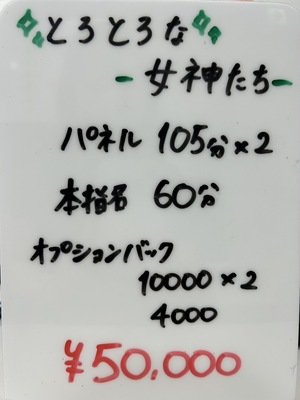 とろとろな
-女神たち-
パネル 105分×2
本指名 60分
オプションバック
10000×2
4000
¥50.000